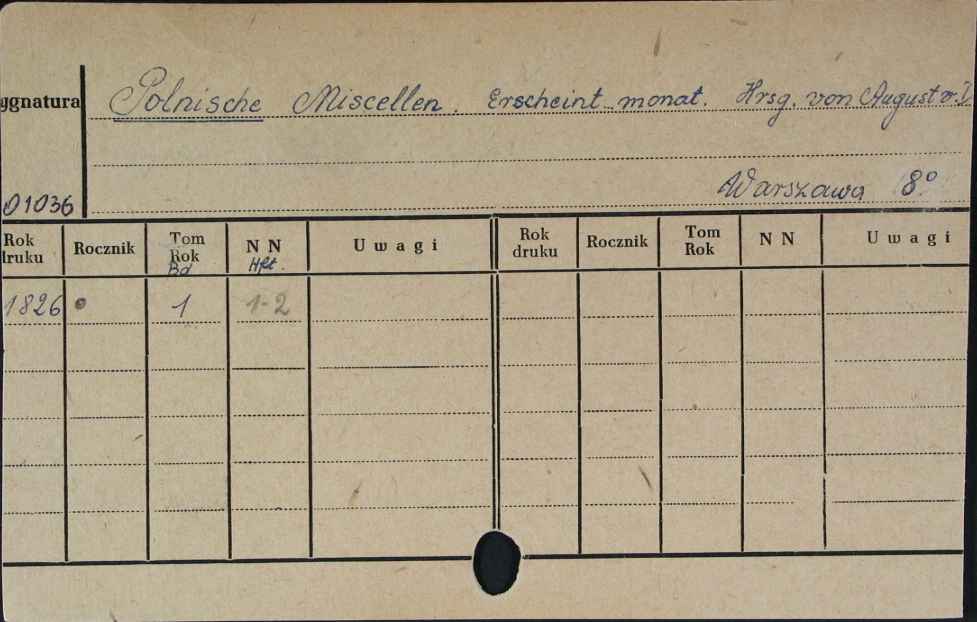 ygnatura Polnische Miscellen. Erscheint monat. Hrsg. von August v.
Warszawa 8º
01036
Rok druku Rocznik Tom Rok Bd N N Hft. U w a g i Rok druku Rocznik Tom Rok N N U w a g i
1826 1 1-2